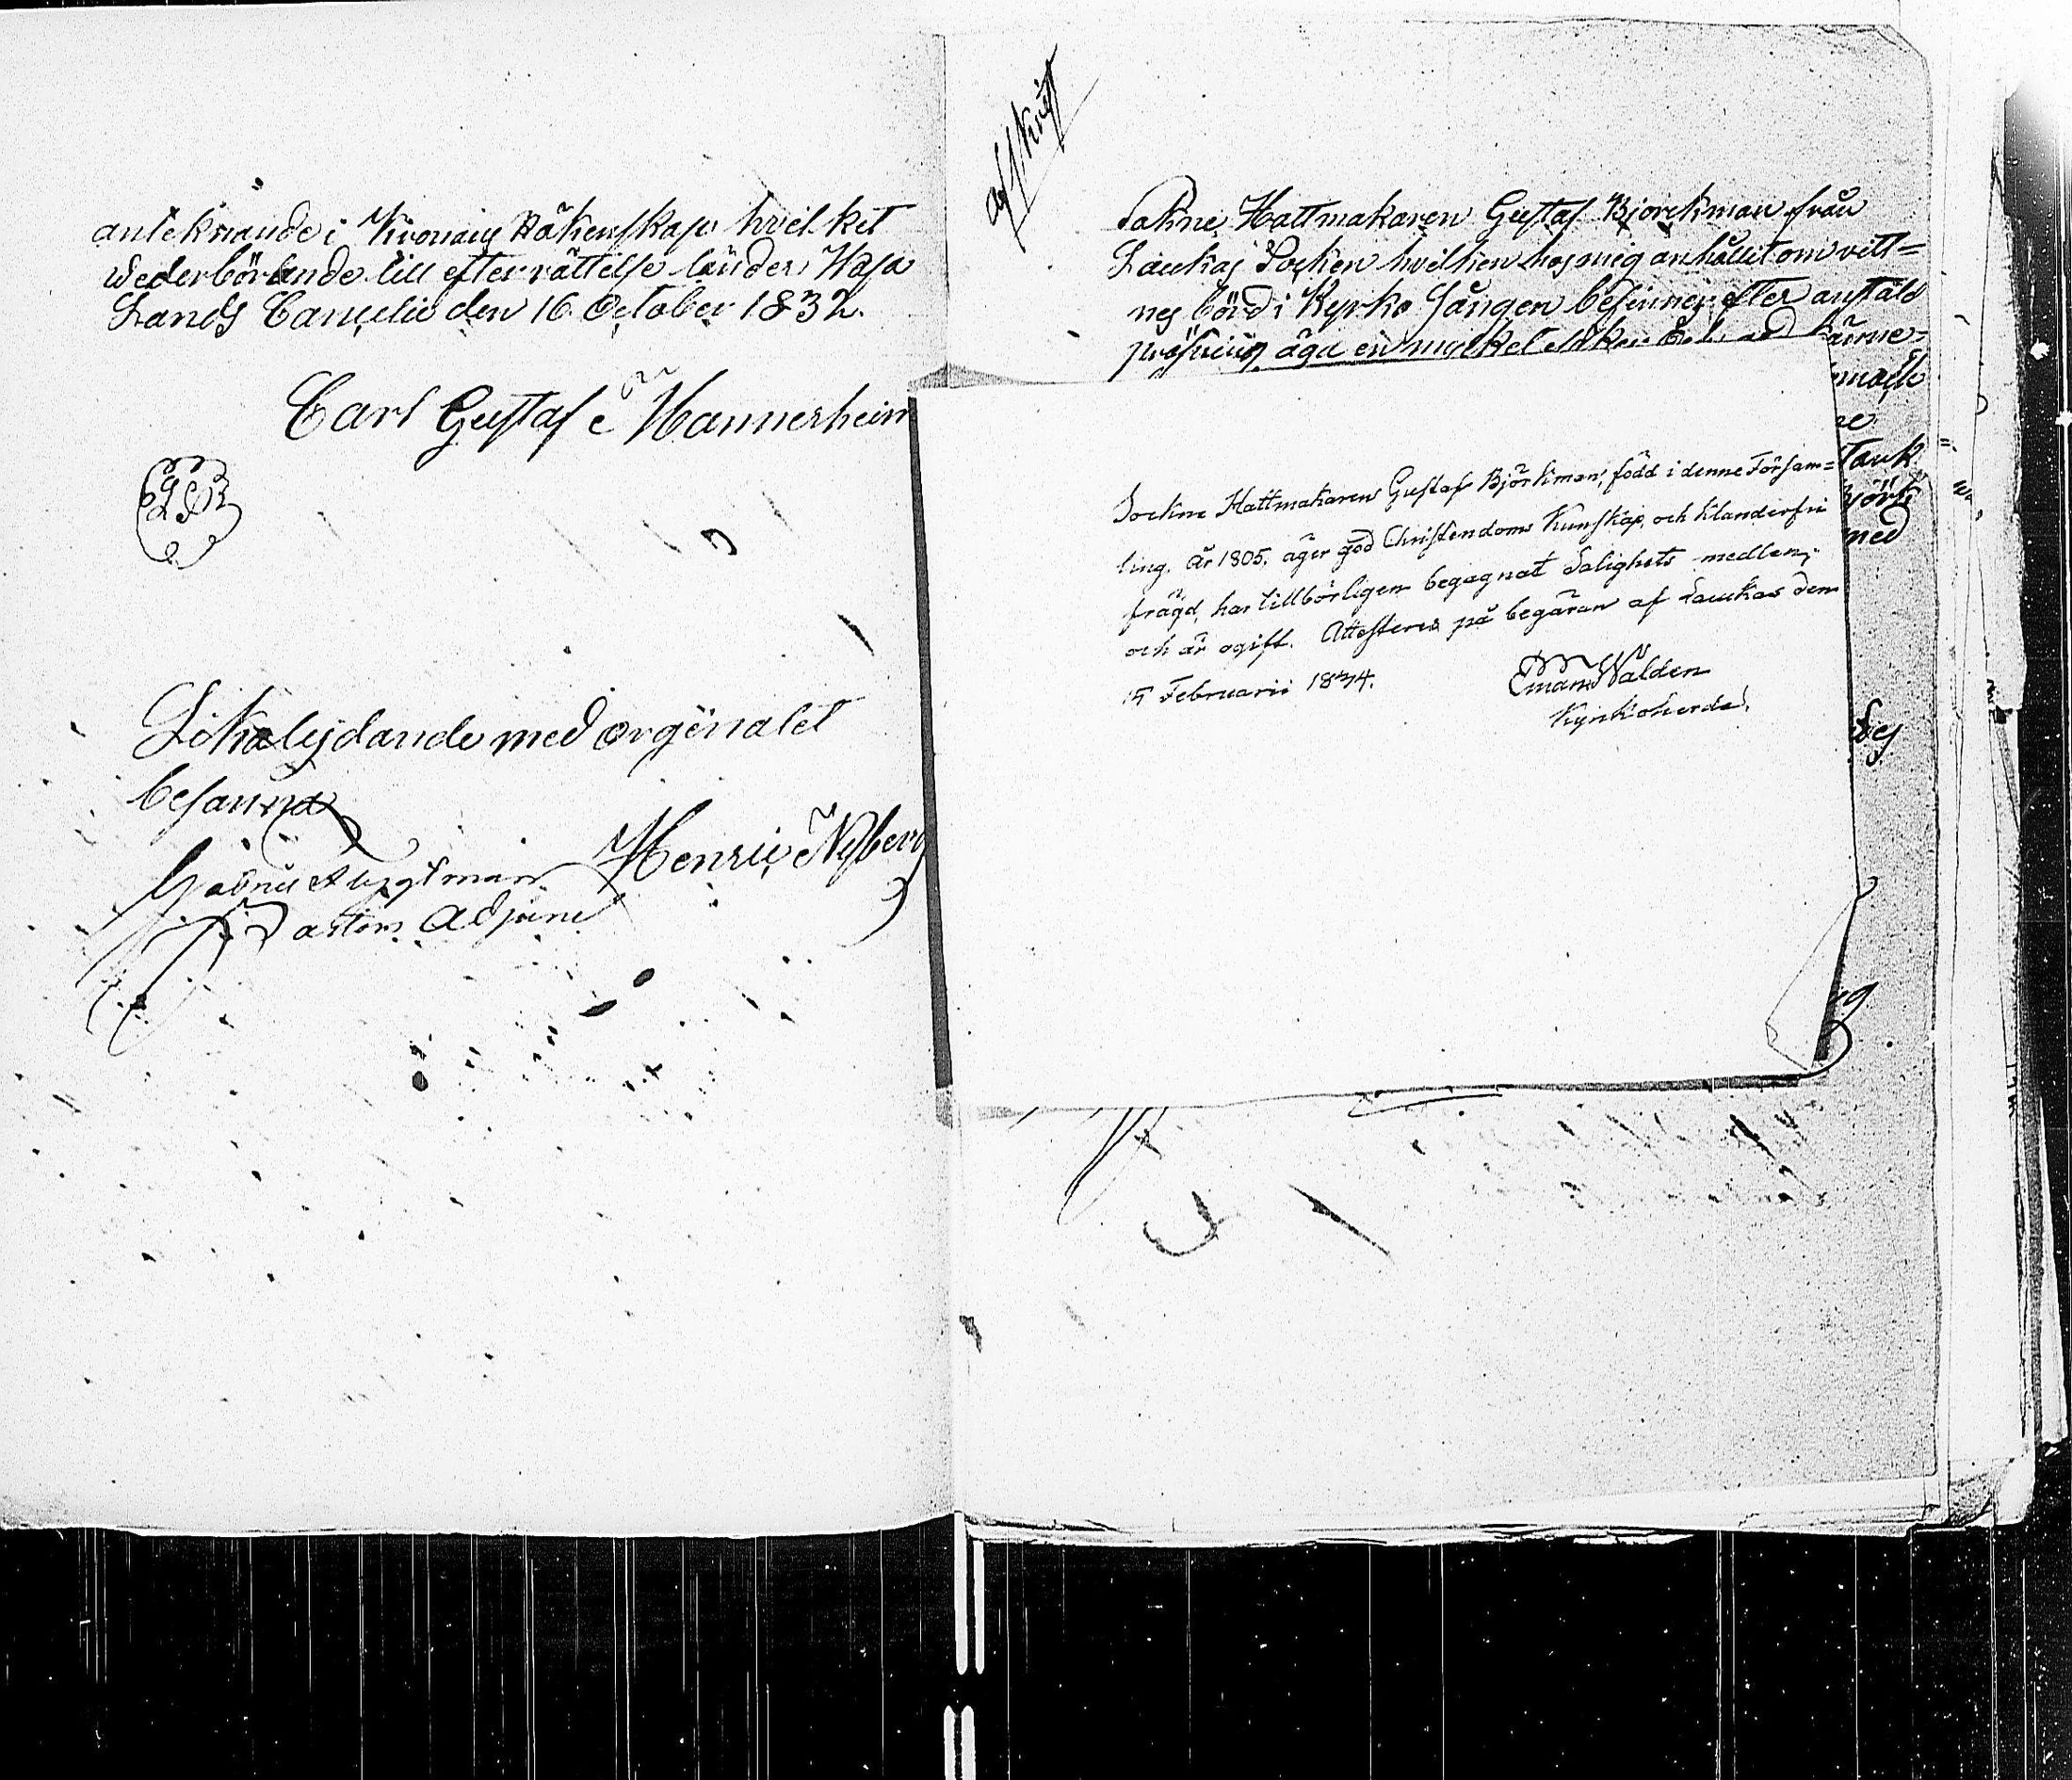 anteknande i Kronans Räkenskap hvilket
wederbörande till efterrättelse länder, Wasa
Lands Cancelie den 16 October 1832.
Carl Gustaf Mannerheim
Lika lydande med orginalet
besanna
Henric Nyberg
Pastors Adjunc
Afskrift
Sokne Hattmakaren Gustaf Bjorckman från
Laukas Socken hvilken hos mig anhållit om vitt=
nes börd i Kyrko Sången befinnes efter anstäld
pröfning äga en mycket
Sockne Hattmakaren Gustaf Björkman, född i denne Försam=
ling år 1805, äger god Christendoms Kunskap, och klanderfri
frägd, har tillbörligen begagnat Salighets medlen,
och är ogift. Attesteras på begäran af Laukas den
15 Februarii 1834.
Eman Walden
Kyrkoherde